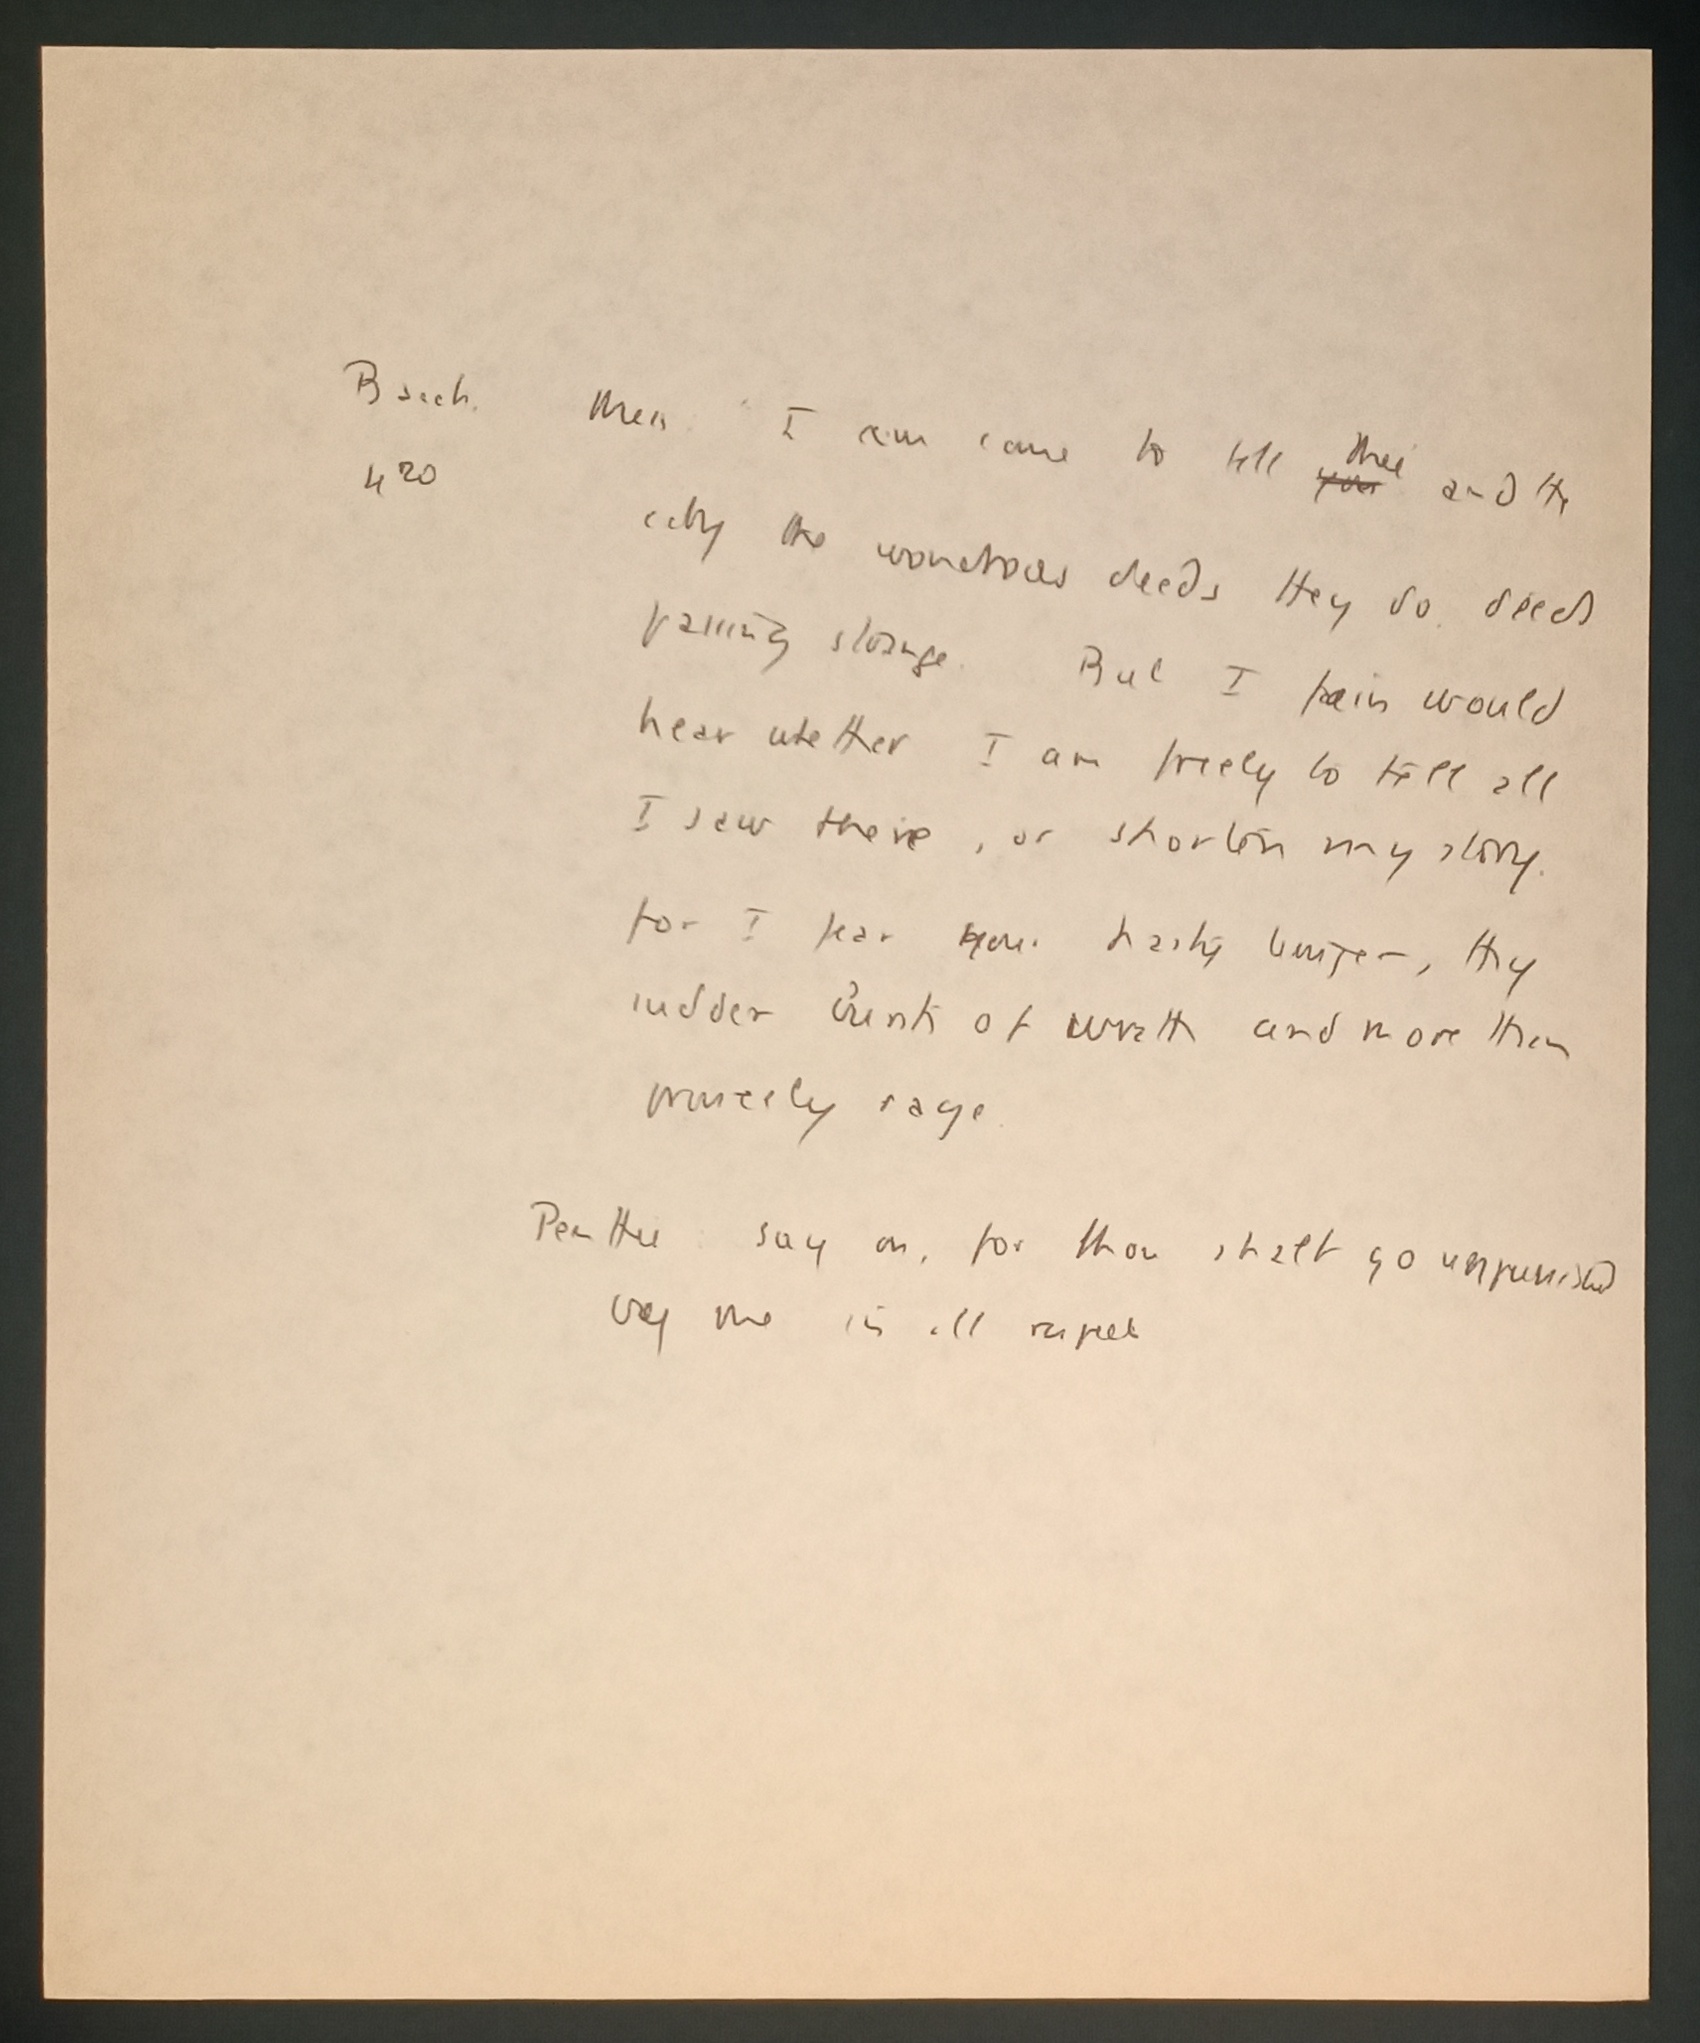 Bacch. Mess. I am come to tell thee and the
420
city the wondrous deeds they do, deeds
passing strange. But I fain would
hear whether I am freely to tell all
I saw there, or shorten my story.
for I fear your hasty temper, thy
sudden bursts of wrath and more than
princely rage.
Penthe: say on, for thou shalt go unpunished
by me in all respect